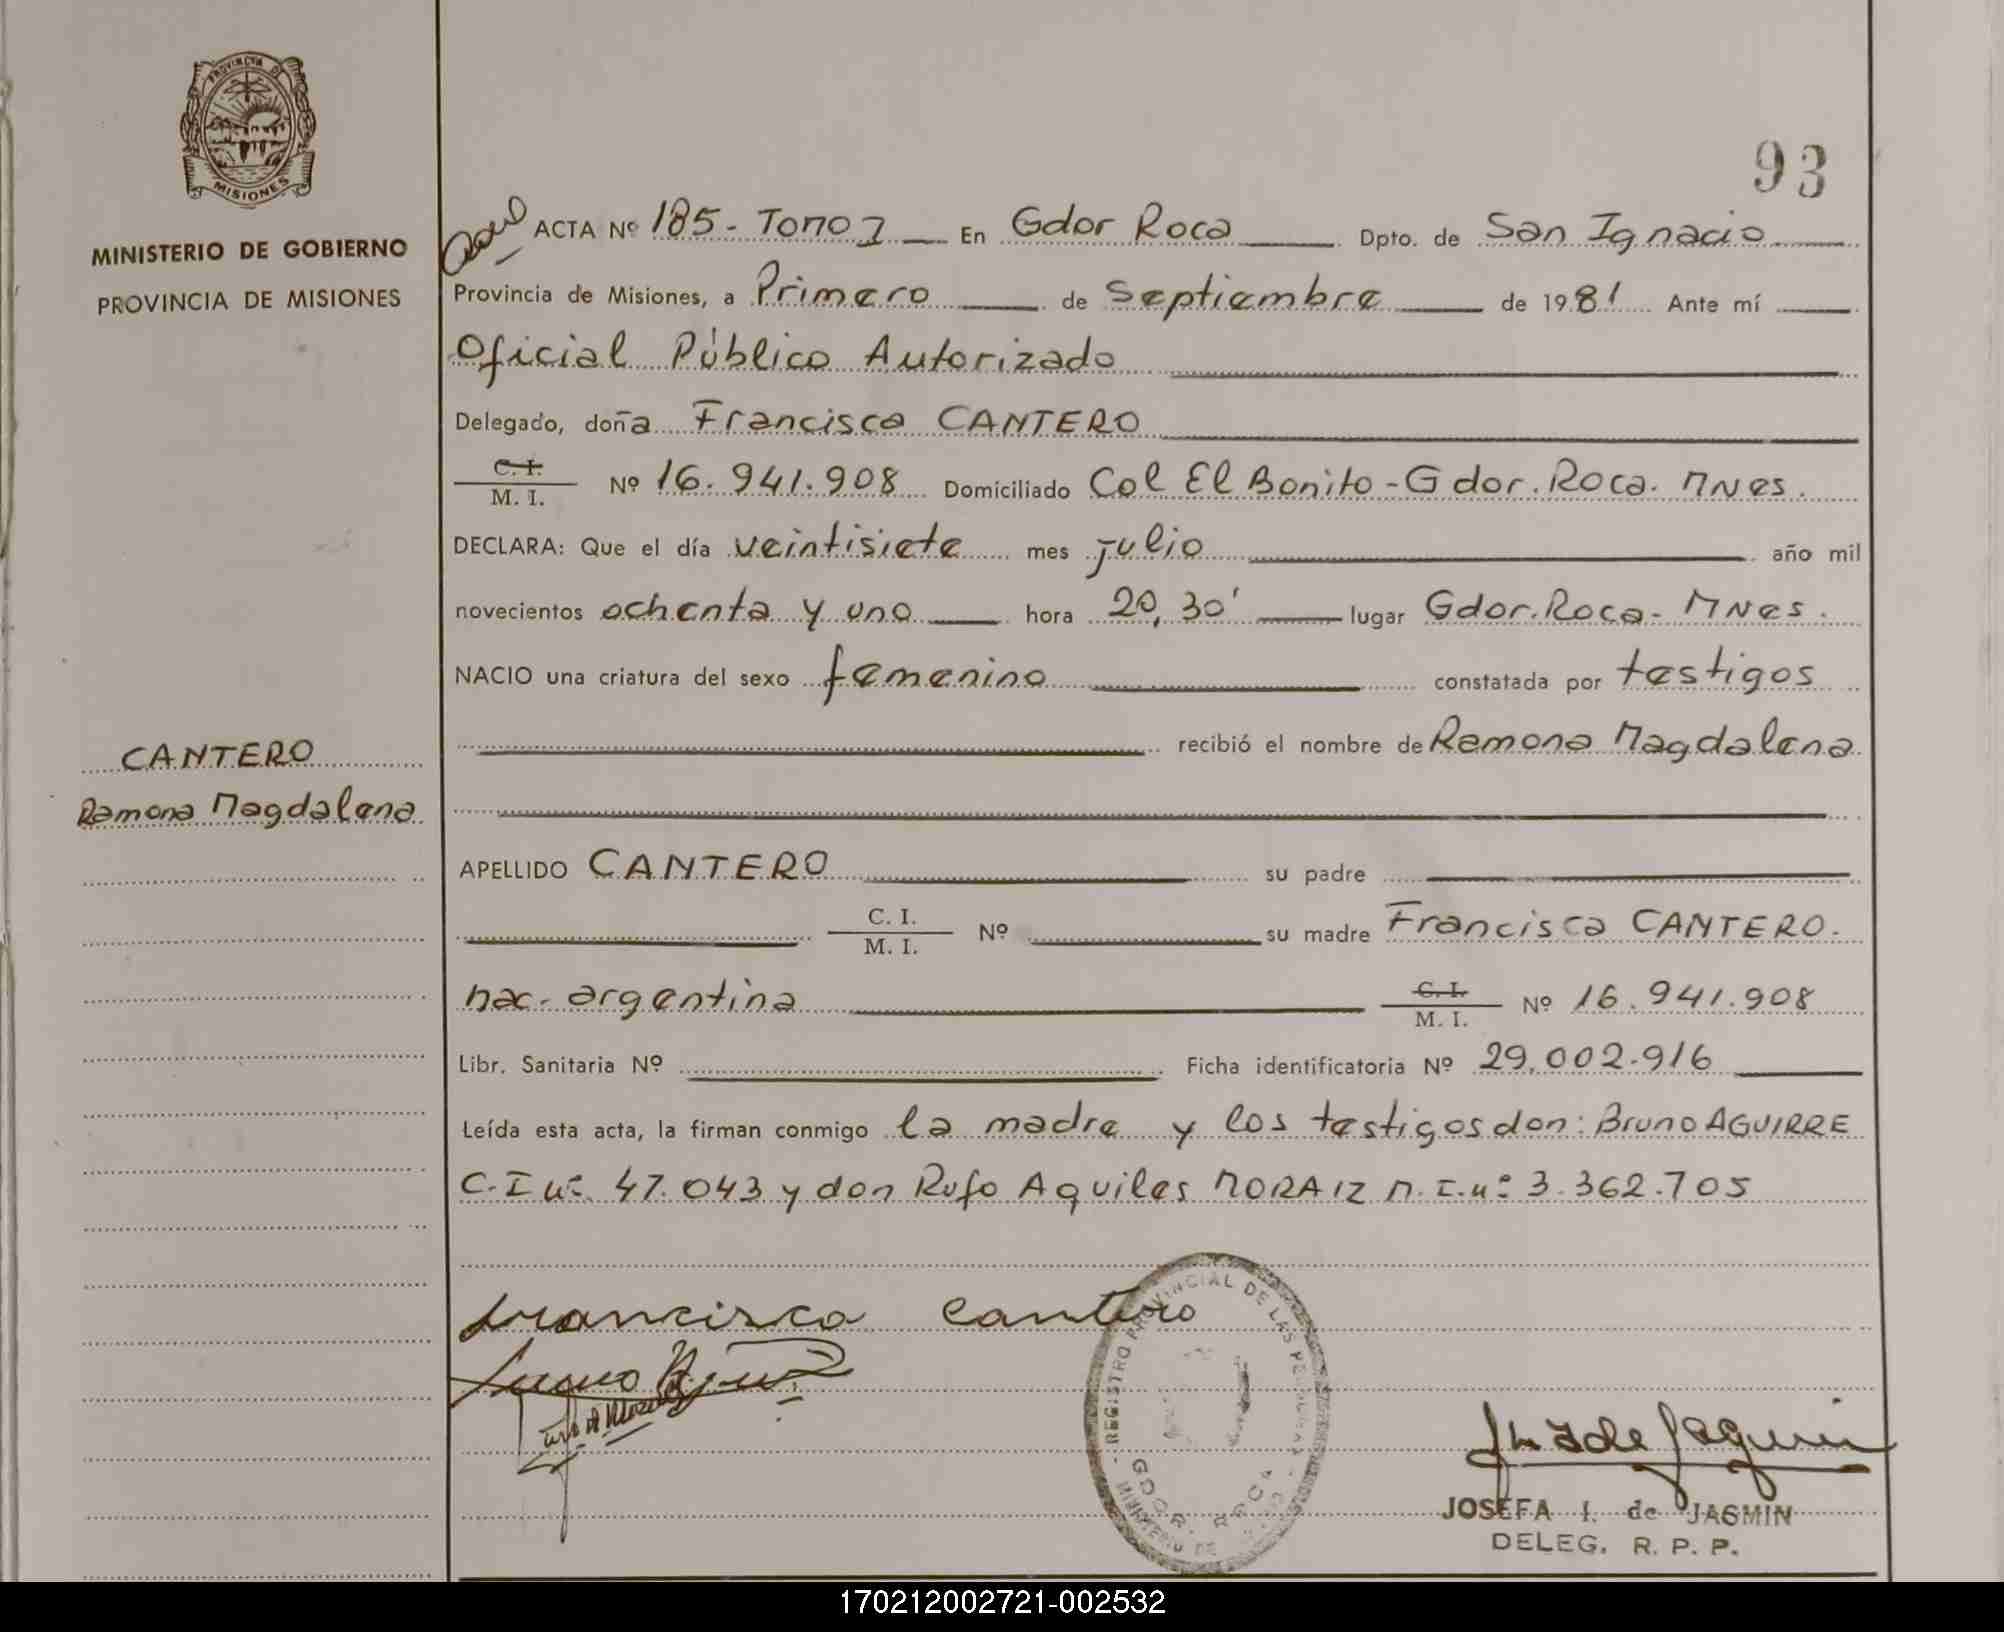 PROVINCIA DE
MISIONES
MINISTERIO DE GOBIERNO
PROVINCIA DE MISIONES
93
ACTA Nº 185 - Tomo I En Gdor Roca Dpto. de San Ignacio
Provincia de Misiones, a Primero de Septiembre de 1981 Ante mí
Oficial Público Autorizado
Delegado, doña Francisca CANTERO
C. I.
M. I. Nº 16.941.908 Domiciliado Col El Bonito - Gdor. Roca. Mnes.
DECLARA: Que el día veintisiete mes julio año mil
novecientos ochenta y uno hora 20,30' lugar Gdor. Roca - Mnes.
NACIO una criatura del sexo femenino constatada por testigos
recibió el nombre de Ramona Magdalena
CANTERO
Ramona Magdalena
APELLIDO CANTERO su padre
C. I.
M. I. Nº su madre Francisca CANTERO.
nac. argentina C. I.
M. I. Nº 16.941.908
Libr. Sanitaria Nº Ficha identificatoria Nº 29.002.916
Leída esta acta, la firman conmigo la madre y los testigos don: Bruno AGUIRRE
C. I nº 47.043 y don Rufo Aquiles MORAIZ M. I. nº 3.362.705
Francisca Cantero
REGISTRO PROVINCIAL DE LAS PERSONAS
GDOR. ROCA
MINISTERIO DE
JOSEFA I. de JASMIN
DELEG. R. P. P.
170212002721-002532